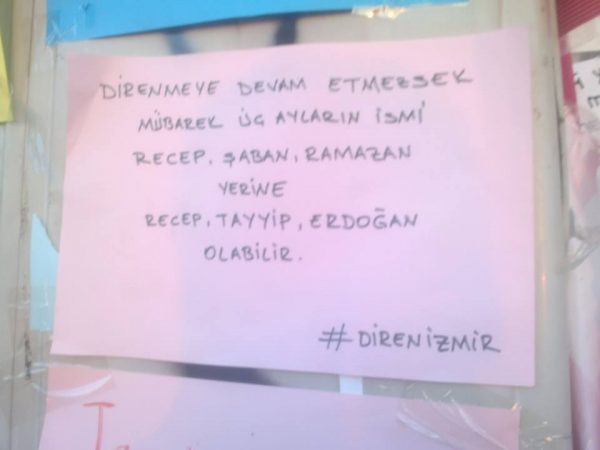 DİRENMEYE DEVAM ETMEZSEK
MÜBAREK ÜÇ AYLARIN İSMİ
RECEP, ŞABAN, RAMAZAN
YERİNE
RECEP, TAYYİP, ERDOĞAN
OLABİLİR.
#DİRENİZMİR